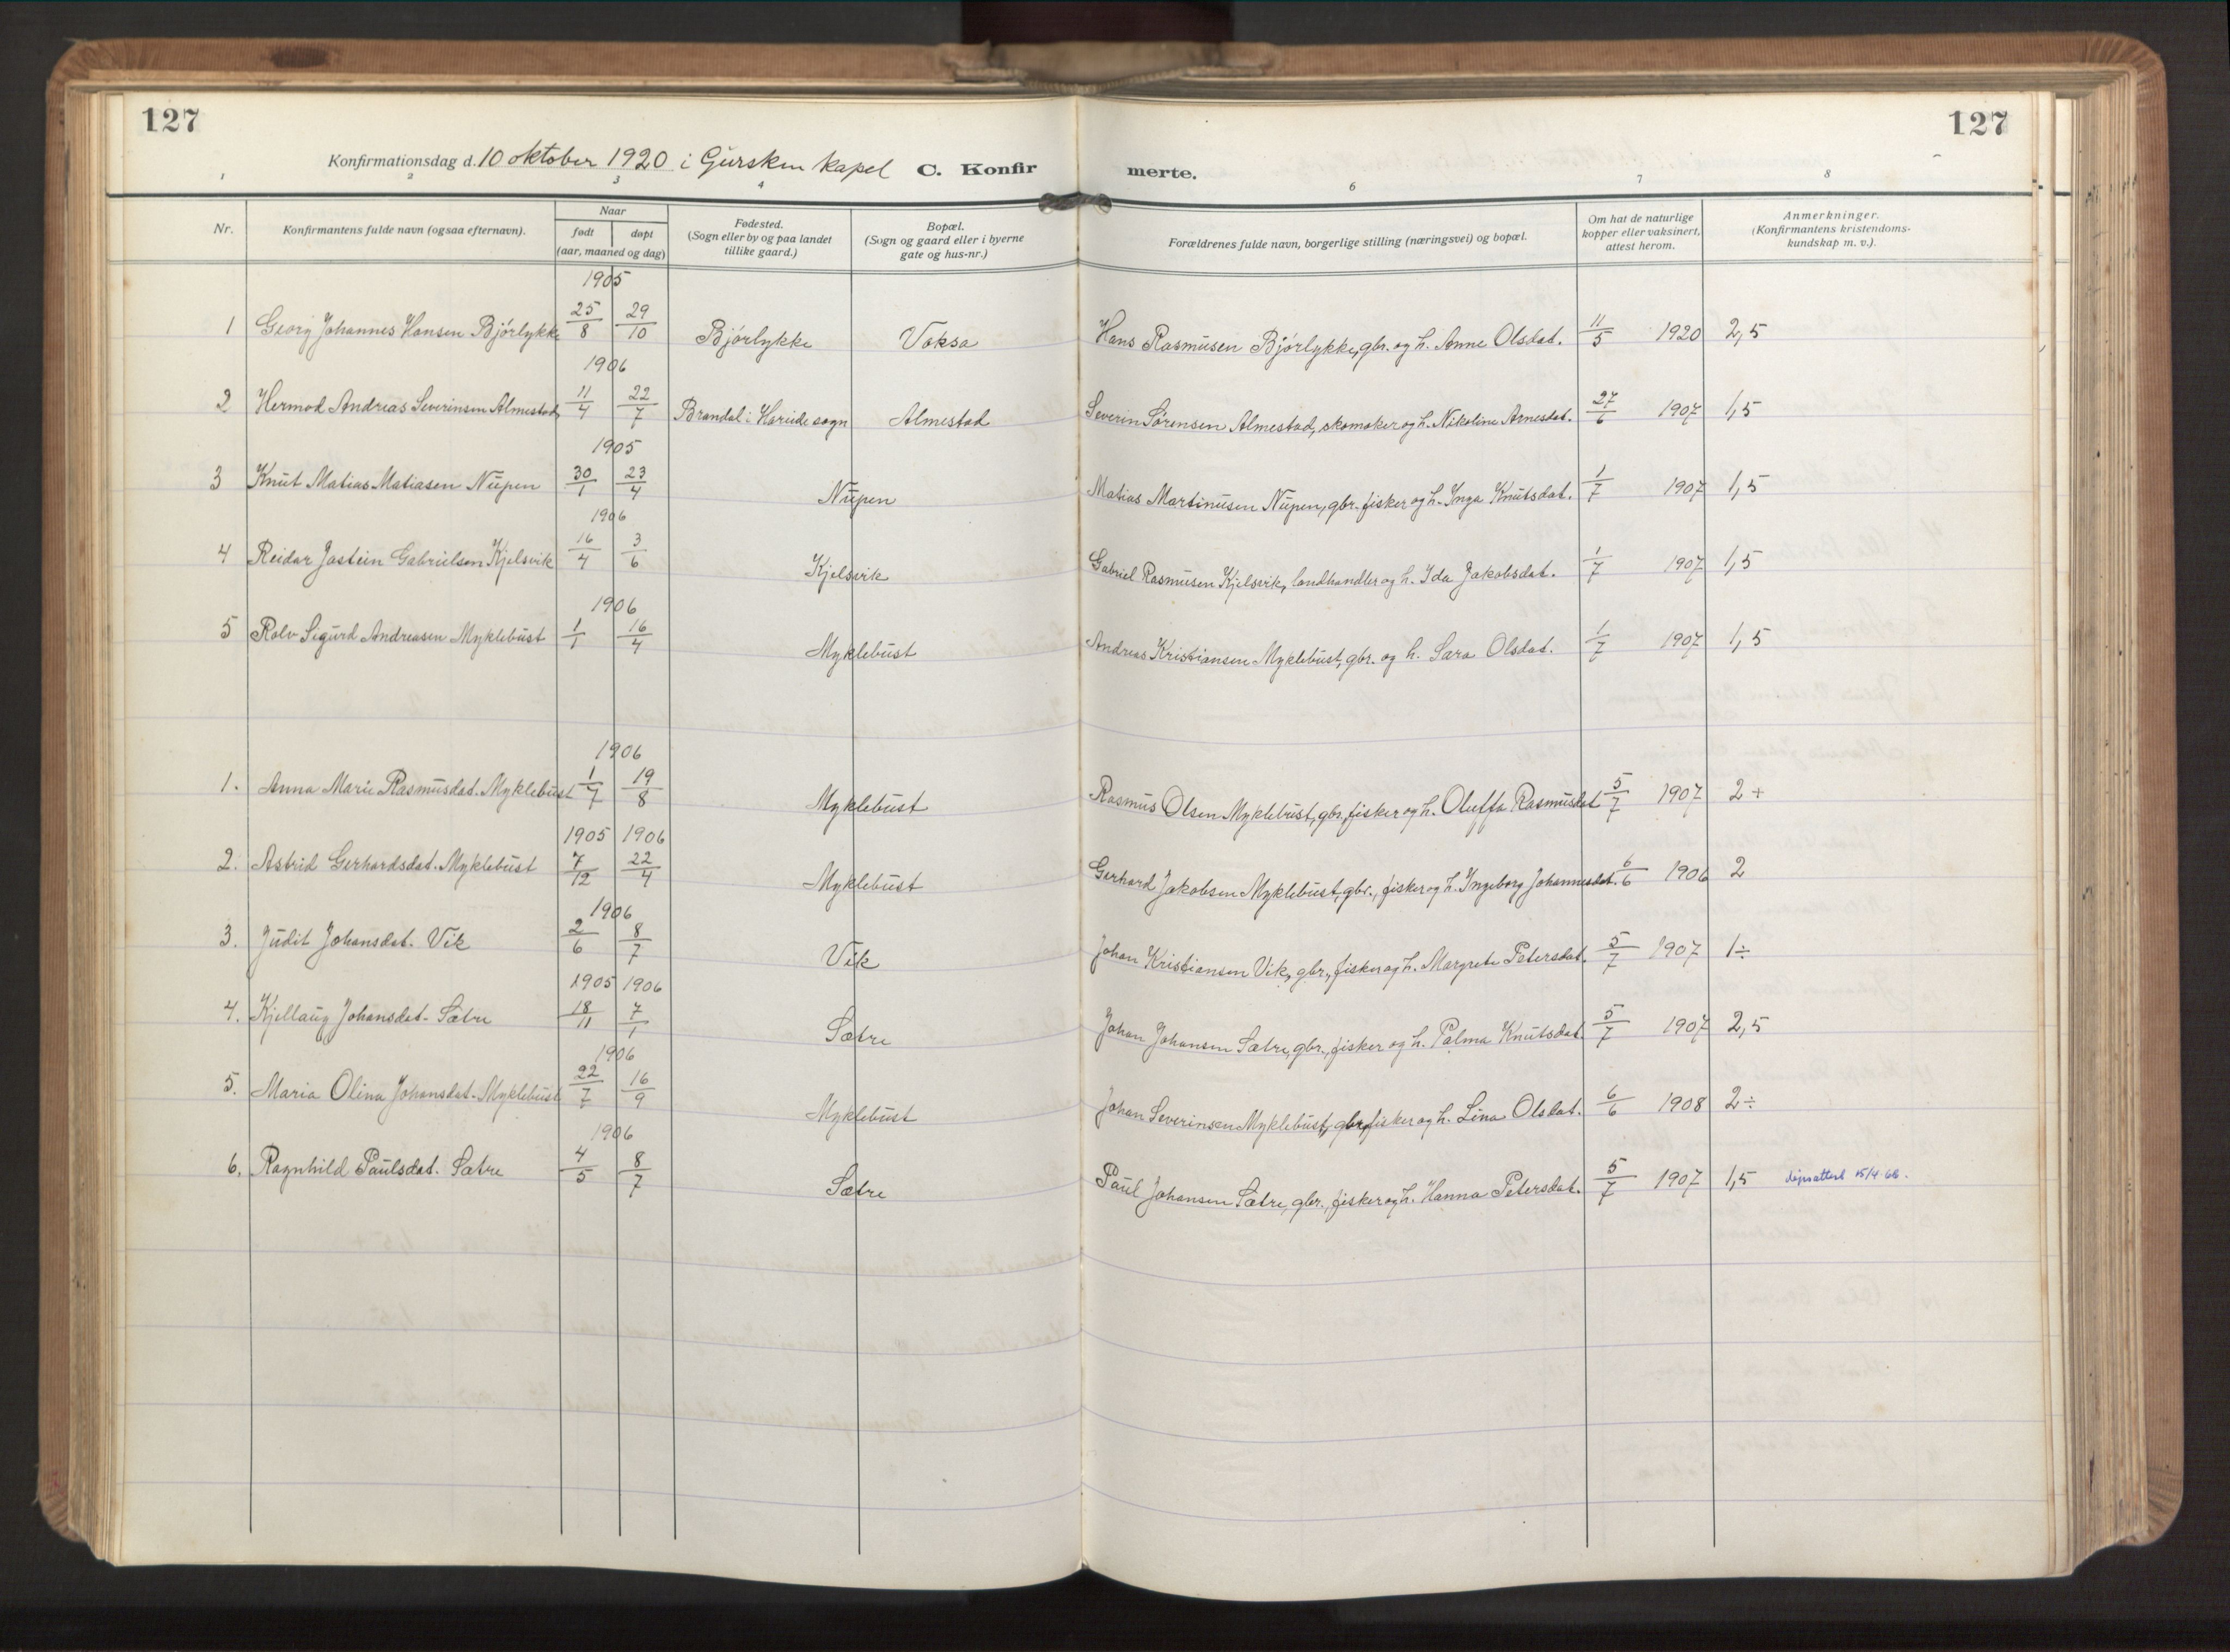 127
127
Konfirmationsdag d. 10 oktober 1920 i Gursken kapel C. Konfirmerte.
1 2 3 4 6 7 8
Nr. Konfirmantens fulde navn (ogsaa efternavn). Naar født døpt (aar, maaned og dag) Fødested. (Sogn eller by og paa landet tillike gaard.) Bopæl. (Sogn og gaard eller i byerne gate og hus-nr.) Forældrenes fulde navn, borgerlige stilling (næringsvei) og bopæl. Om hat de naturlige kopper eller vaksinert, attest herom. Anmerkninger. (Konfirmantens kristendoms-kundskap m. v.).
1905
1 Georg Johannes Hansen Bjørlykke 25/8 29/10 Bjørlykke Voksa Hans Rasmusen Bjørlykke, gbr. og h. Anne Olsdat. 11/5 1920 2,5
1906
2 Hermod Andreas Severinsen Almestad 11/4 22/7 Brandal i Hareide sogn Almestad Severin Sørensen Almestad, skomaker og h. Nikoline Arnesdat. 27/6 1907 1,5
1905
3 Knut Matias Matiasen Nupen 30/1 23/4 Nupen Matias Martinusen Nupen, gbr. fisker og h. Inga Knutsdat. 1/7 1907 1,5
1906
4 Reidar Jostein Gabrielsen Kjelsvik 16/4 3/6 Kjelsvik Gabriel Rasmusen Kjelsvik, landhandler og h. Ida Jakobsdat. 1/7 1907 1,5
1906
5 Rolv Sigurd Andreasen Myklebust 1/1 16/4 Myklebust Andreas Kristiansen Myklebust, gbr. og h. Sara Olsdat. 1/7 1907 1,5
1906
1. Anna Marie Rasmusdat. Myklebust 1/7 19/8 Myklebust Rasmus Olsen Myklebust, gbr, fisker og h. Oluffa Rasmusdat 5/7 1907 2 +
1905 1906
2. Astrid Gerhardsdat. Myklebust 7/12 22/4 Myklebust Gerhard Jakobsen Myklebust, gbr., fisker og h. Ingeborg Johannesdat. 6/6 1906 2
1906
3. Judit Johansdat. Vik 2/6 8/7 Vik Johan Kristiansen Vik, gbr., fisker og h. Margrete Petersdat. 5/7 1907 1 ÷
1905 1906
4. Kjellaug Johansdat. Sætre 18/11 7/1 Sætre Johan Johansen Sætre, gbr., fisker og h. Palma Knutsdat. 5/7 1907 2,5
1906
5. Maria Olina Johansdat. Myklebust 22/7 16/9 Myklebust Johan Severinsen Myklebust, gbr, fisker og h. Lina Olsdat. 6/6 1908 2 ÷
1906
6. Ragnhild Paulsdat. Sætre 4/5 8/7 Sætre Paul Johansen Sætre, gbr., fisker og h. Hanna Petersdat. 5/7 1907 1,5 dåpsattest 15/4 66.